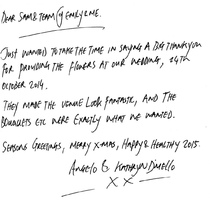 DEAR SAM & TEAM @ EMILY & ME.
JUST WANTED TO TAKE THE TIME IN SAYING A BIG THANKYOU
FOR PROVIDING THE FLOWERS AT OUR WEDDING, 24TH
OCTOBER 2014.
THEY MADE THE VENUE LOOK FANTASTIC, AND THE
BOUQUETS ETC WERE EXACTLY WHAT WE WANTED.
SEASONS GREETINGS, MERRY X-MAS, HAPPY & HEALTHY 2015.
ANGELO & KATHRYN
X X